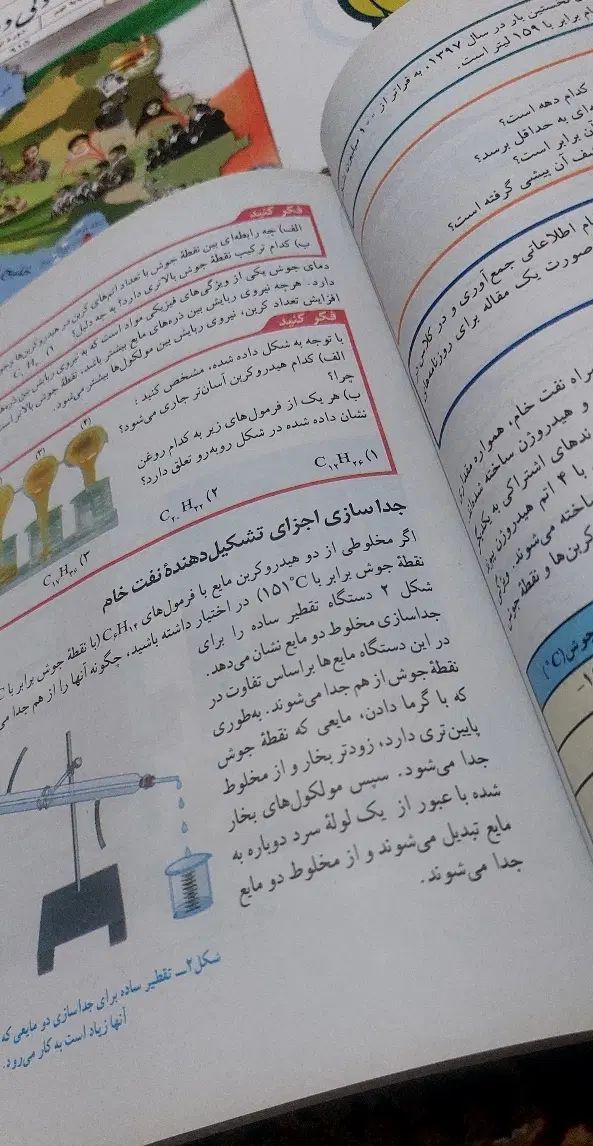 نخستین بار در سال ۱۳۹۷، به فراتر از ۱۰۰
برابر با ۱۵۹ لیتر است.
کدام دهه است؟
به حداقل برسد؟
آن برابر است؟
آن پیشی گرفته است؟
اطلاعاتی جمع‌آوری و در کلاس
صورت یک مقاله برای روزنامه
نفت خام، همواره
و هیدروژن ساخته
اشتراکی به یکدیگر
با ۴ اتم هیدروژن
ساخته می‌شوند. ویژگی
کربن‌ها و نقطهٔ جوش
جوش (°C)
فکر کنید
الف) چه رابطه‌ای بین نقطهٔ جوش با تعداد اتم‌های کربن در هیدروکربن‌ها وجود
ب) کدام ترکیب نقطهٔ جوش بالاتری دارد؟ به چه دلیل؟
دمای جوش یکی از ویژگی‌های فیزیکی مواد است که به نیروی ربایش بین ذره‌های
دارد. هرچه نیروی ربایش بین ذره‌های مایع بیشتر باشد، نقطهٔ جوش بالاتر است
افزایش تعداد کربن، نیروی ربایش بین مولکول‌ها بیشتر می‌شود.
فکر کنید
با توجه به شکل داده شده، مشخص کنید:
الف) کدام هیدروکربن آسان‌تر جاری می‌شود؟
چرا؟
ب) هر یک از فرمول‌های زیر به کدام روغن
نشان داده شده در شکل روبه‌رو تعلق دارد؟
(۲) (۳)
۱) C₁₂H₂₆
۲) C₂₀H₴₂
۳) C₁₇H₃₆
جداسازی اجزای تشکیل‌دهندهٔ نفت خام
اگر مخلوطی از دو هیدروکربن مایع با فرمول‌های C₆H₁₄ (با نقطهٔ جوش برابر با
نقطهٔ جوش برابر با ۱۵۱°C) در اختیار داشته باشید، چگونه آنها را از هم جدا
شکل ۲ دستگاه تقطیر ساده را برای
جداسازی مخلوط دو مایع نشان می‌دهد.
در این دستگاه مایع‌ها براساس تفاوت در
نقطهٔ جوش از هم جدا می‌شوند. به‌طوری
که با گرما دادن، مایعی که نقطهٔ جوش
پایین‌تری دارد، زودتر بخار و از مخلوط
جدا می‌شود. سپس مولکول‌های بخار
شده با عبور از یک لولهٔ سرد دوباره به
مایع تبدیل می‌شوند و از مخلوط دو مایع
جدا می‌شوند.
شکل ۲ــ تقطیر ساده برای جداسازی دو مایعی که
آنها زیاد است به کار می‌رود.